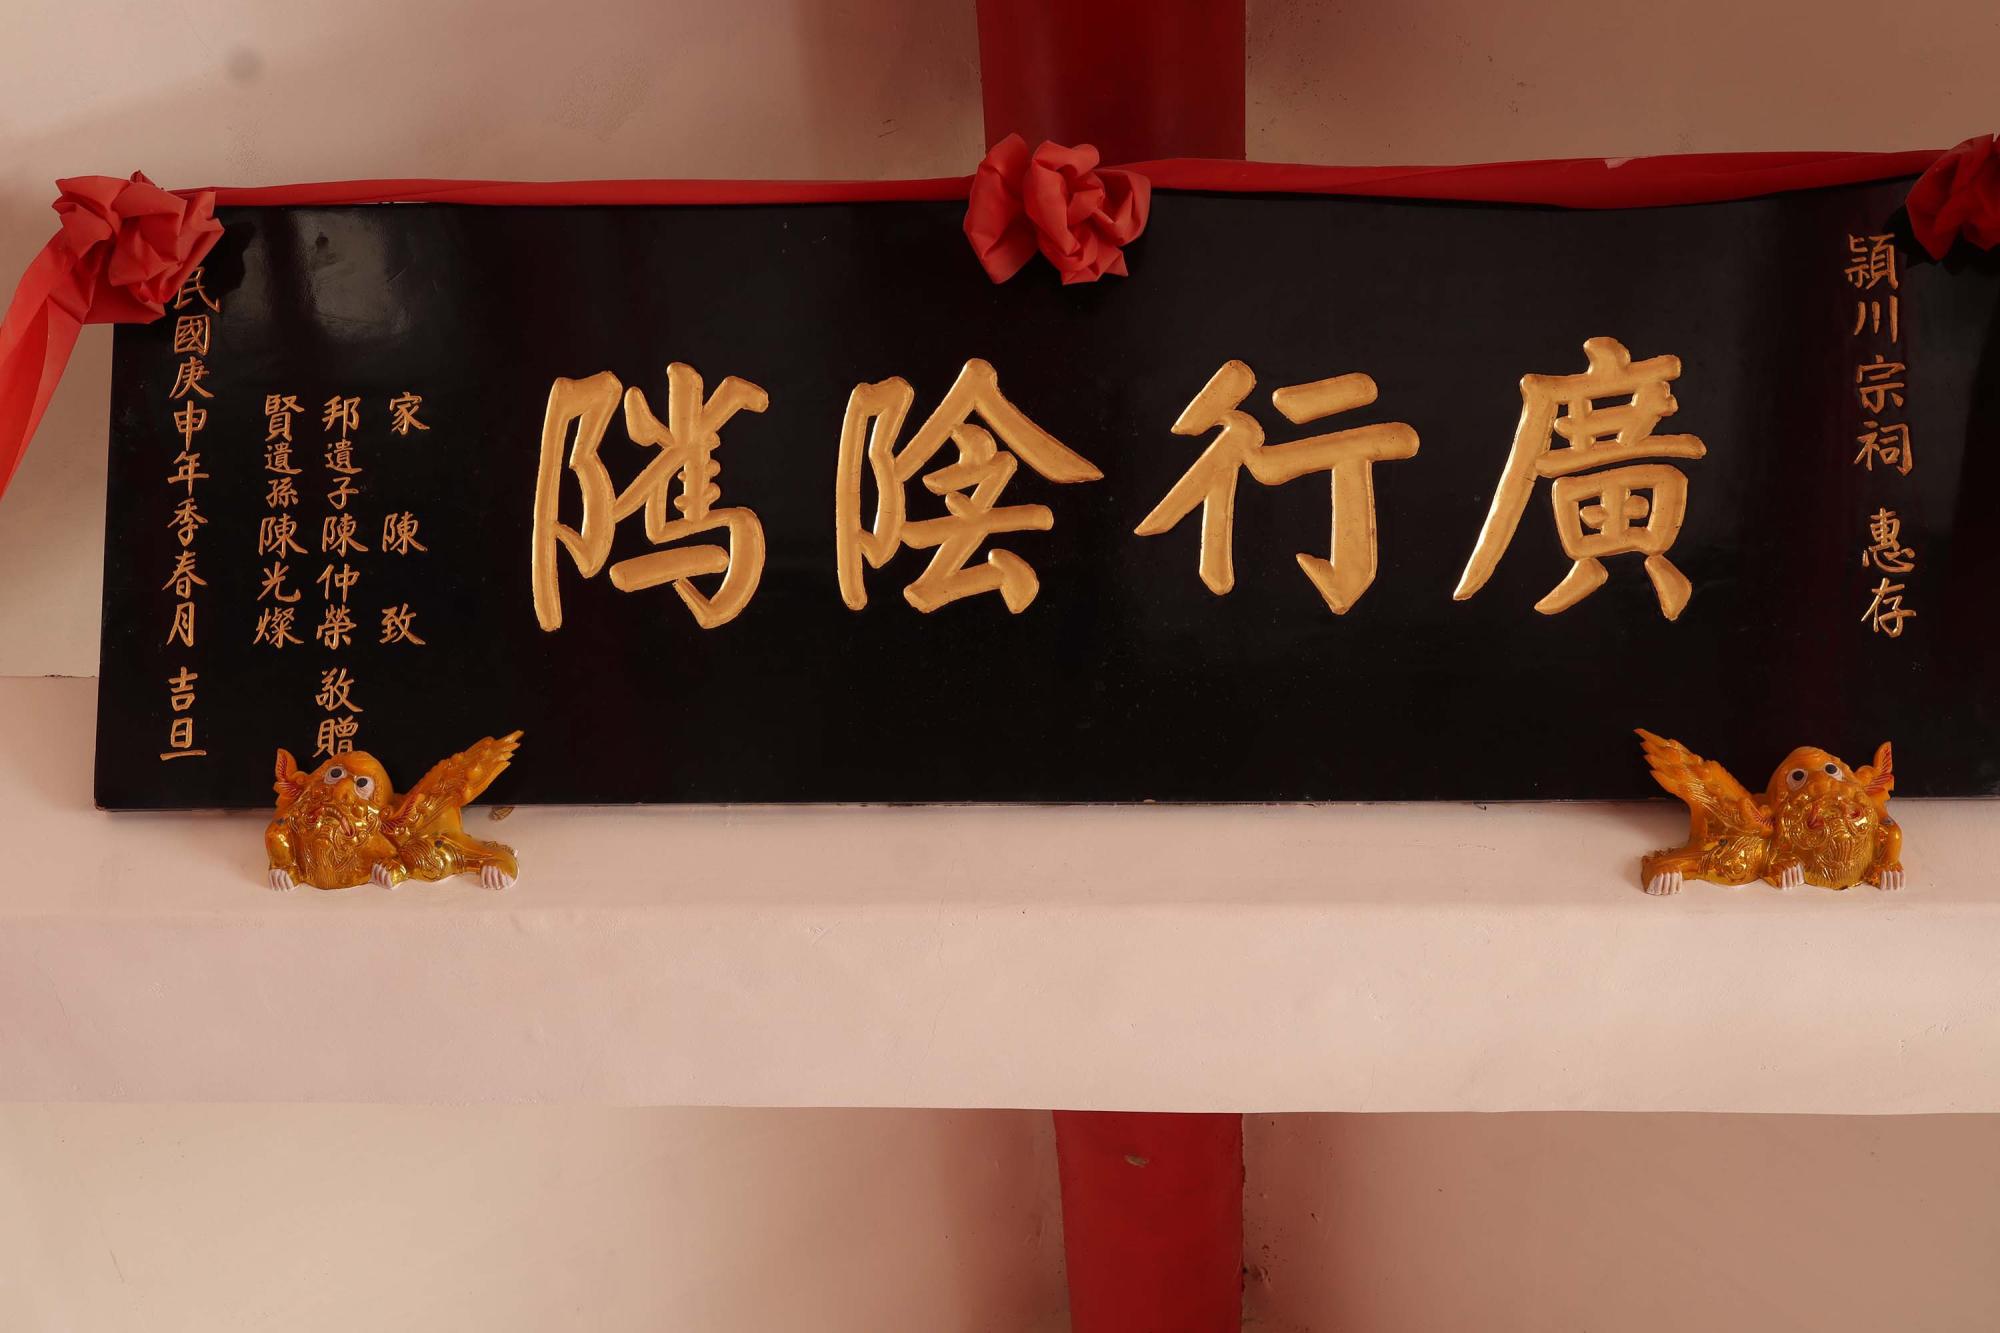 潁川宗祠 惠存
廣行陰隲
家 陳 致
邦遺子陳仲榮 敬贈
賢遺孫陳光燦
民國庚申年季春月 吉旦